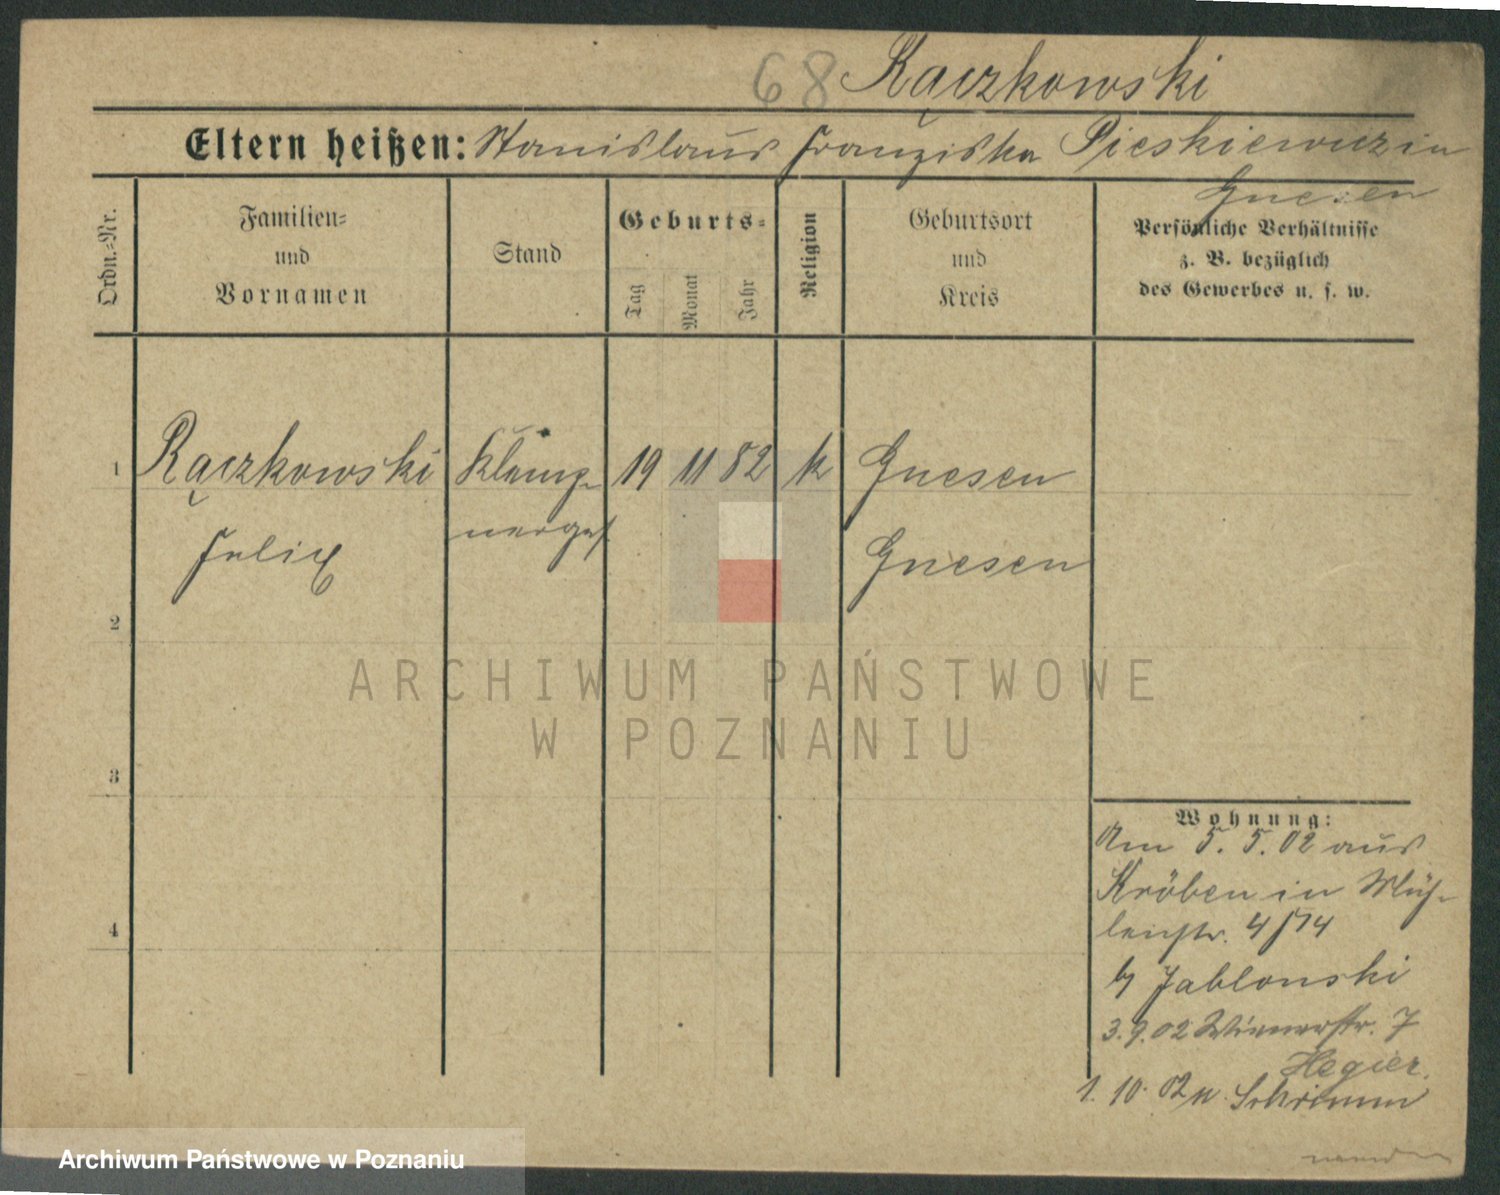 68 Rączkowski
Eltern heißen: Stanislaus Franziska Pieskiewicz in
Gnesen
Ordn.-Nr.
Familien- und Vornamen
Stand
Geburts-
Tag
Monat
Jahr
Religion
Geburtsort und Kreis
Persönliche Verhältnisse
z. B. bezüglich
des Gewerbes u. s. w.
1 Rączkowski Klemp- 19 11 82 k Gnesen
nerges
Felix Gnesen
2
ARCHIWUM PAŃSTWOWE
W POZNANIU
3
4
Wohnung:
Am 5. 5. 02 aus
Kröben in Müh-
lenstr. 4/14
b/ Jablonski
3. 9. 02 Wienerstr. 7
Hegier.
1. 10. 02 n. Schrimm
Archiwum Państwowe w Poznaniu